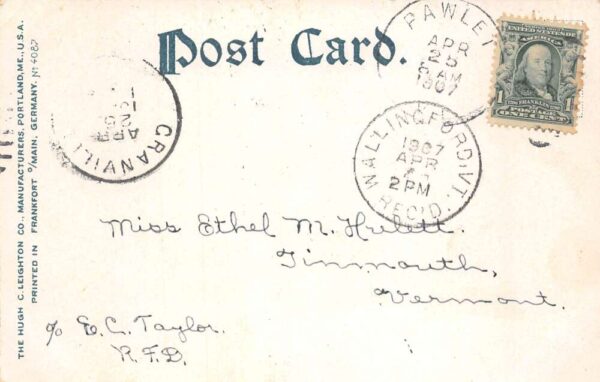 Post Card.
PAWLET
APR
25
AM
1907
UNITED STATES OF
AMERICA
1 1
POSTAGE
ONE CENT
GRANVILL
APR
WALLINGFORD, VT.
1907
APR
2 PM
REC'D.
Miss Ethel M. Hulett.
Tinmouth,
Vermont.
c/o E. C. Taylor.
R.F.D.
THE HUGH C. LEIGHTON CO., MANUFACTURERS, PORTLAND, ME., U.S.A.
PRINTED IN FRANKFORT O/MAIN, GERMANY. No 4087